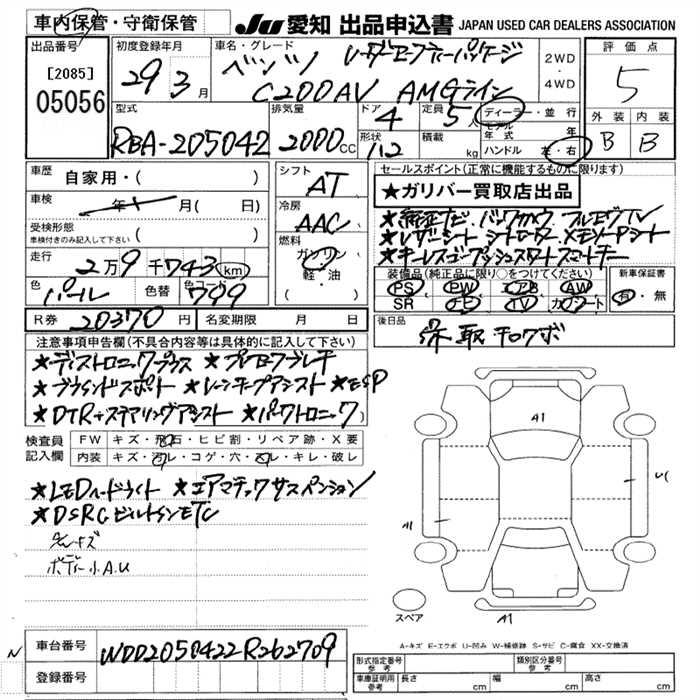 車内保管・守衛保管
JU 愛知 出品申込書 JAPAN USED CAR DEALERS ASSOCIATION
出品番号
[2085]
05056
初度登録年月
29年3月
車名・グレード
ベンツ レーダーセーフティーパッケージ
C200AV AMGライン
2WD・4WD
評価点
5
外装 内装
B B
型式
RBA-205042
排気量
2000cc
ドア 4
形状
定員 5人
積載 kg
ディーラー・並行
モデル年式 年
ハンドル 左・右
車歴 自家用・( )
車検 年 月( 日)
受検形態
車検付きのみ記入して下さい ( )
走行 2万9千743km
色 パール 色替 色コード 799
シフト AT
冷房 AAC
燃料 ガソリン 軽・油
セールスポイント(正常に機能するものに限ります)
★ガリバー買取店出品
★純正ナビ バックカメラ フルセグTV
★レザーシート シートヒーター メモリーPシート
★キーレスゴー プッシュスタート スマートキー
装備品(純正品に限り○をつけてください)
PS PW エアB AW
SR ナビ TV カワシート
新車保証書
有・無
R券 20370円
名変期限 月 日
後日品
注意事項申告欄(不具合内容等は具体的に記入して下さい)
★ディストロニックプラス ★プレセーフブレーキ
★ブラインドスポット ★レーンキープアシスト ★ESP
★DTR+ステアリングアシスト ★パークトロニック
検査員記入欄
FW キズ・飛石・ヒビ割・リペア跡・X要
内装 キズ・汚レ・コゲ・穴・スレ・キレ・破レ
★LEDヘッドライト ★エアマチックサスペンション
★DSRCビルトインETC
ボディ小A.U
A1
U1
A1
A1
スペア
A-キズ E-エクボ U-凹み W-補修跡 S-サビ C-腐食 XX-交換済
N
車台番号 WDD2050422R262709
登録番号
形式指定番号 参考
類別区分番号 参考
車庫証明用 参考 長さ cm 幅 cm 高さ cm